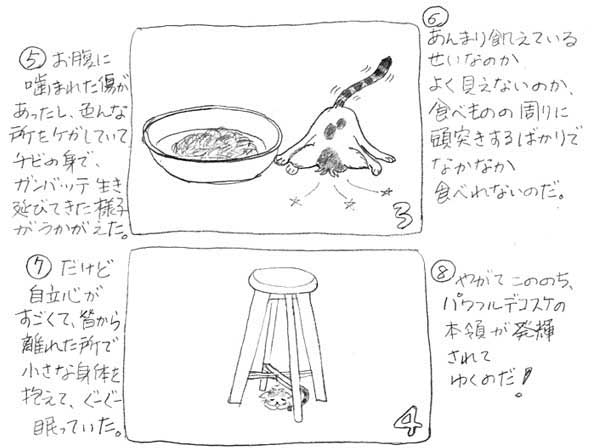 ⑤ お腹に
噛まれた傷が
あったし、色んな
所をケガしていて
チビの身で、
ガンバッテ生き
延びてきた様子
がうかがえた。
3
⑥
あんまり飢えている
せいなのか
よく見えないのか、
食べものの周りに
頭突きするばかりで
なかなか
食べれないのだ。
⑦ だけど
自立心が
すごくて、皆から
離れた所で
小さな身体を
抱えて、ぐーぐー
眠っていた。
4
⑧ やがてこののち、
パワフルデコスケの
本領が発揮
されて
ゆくのだ!